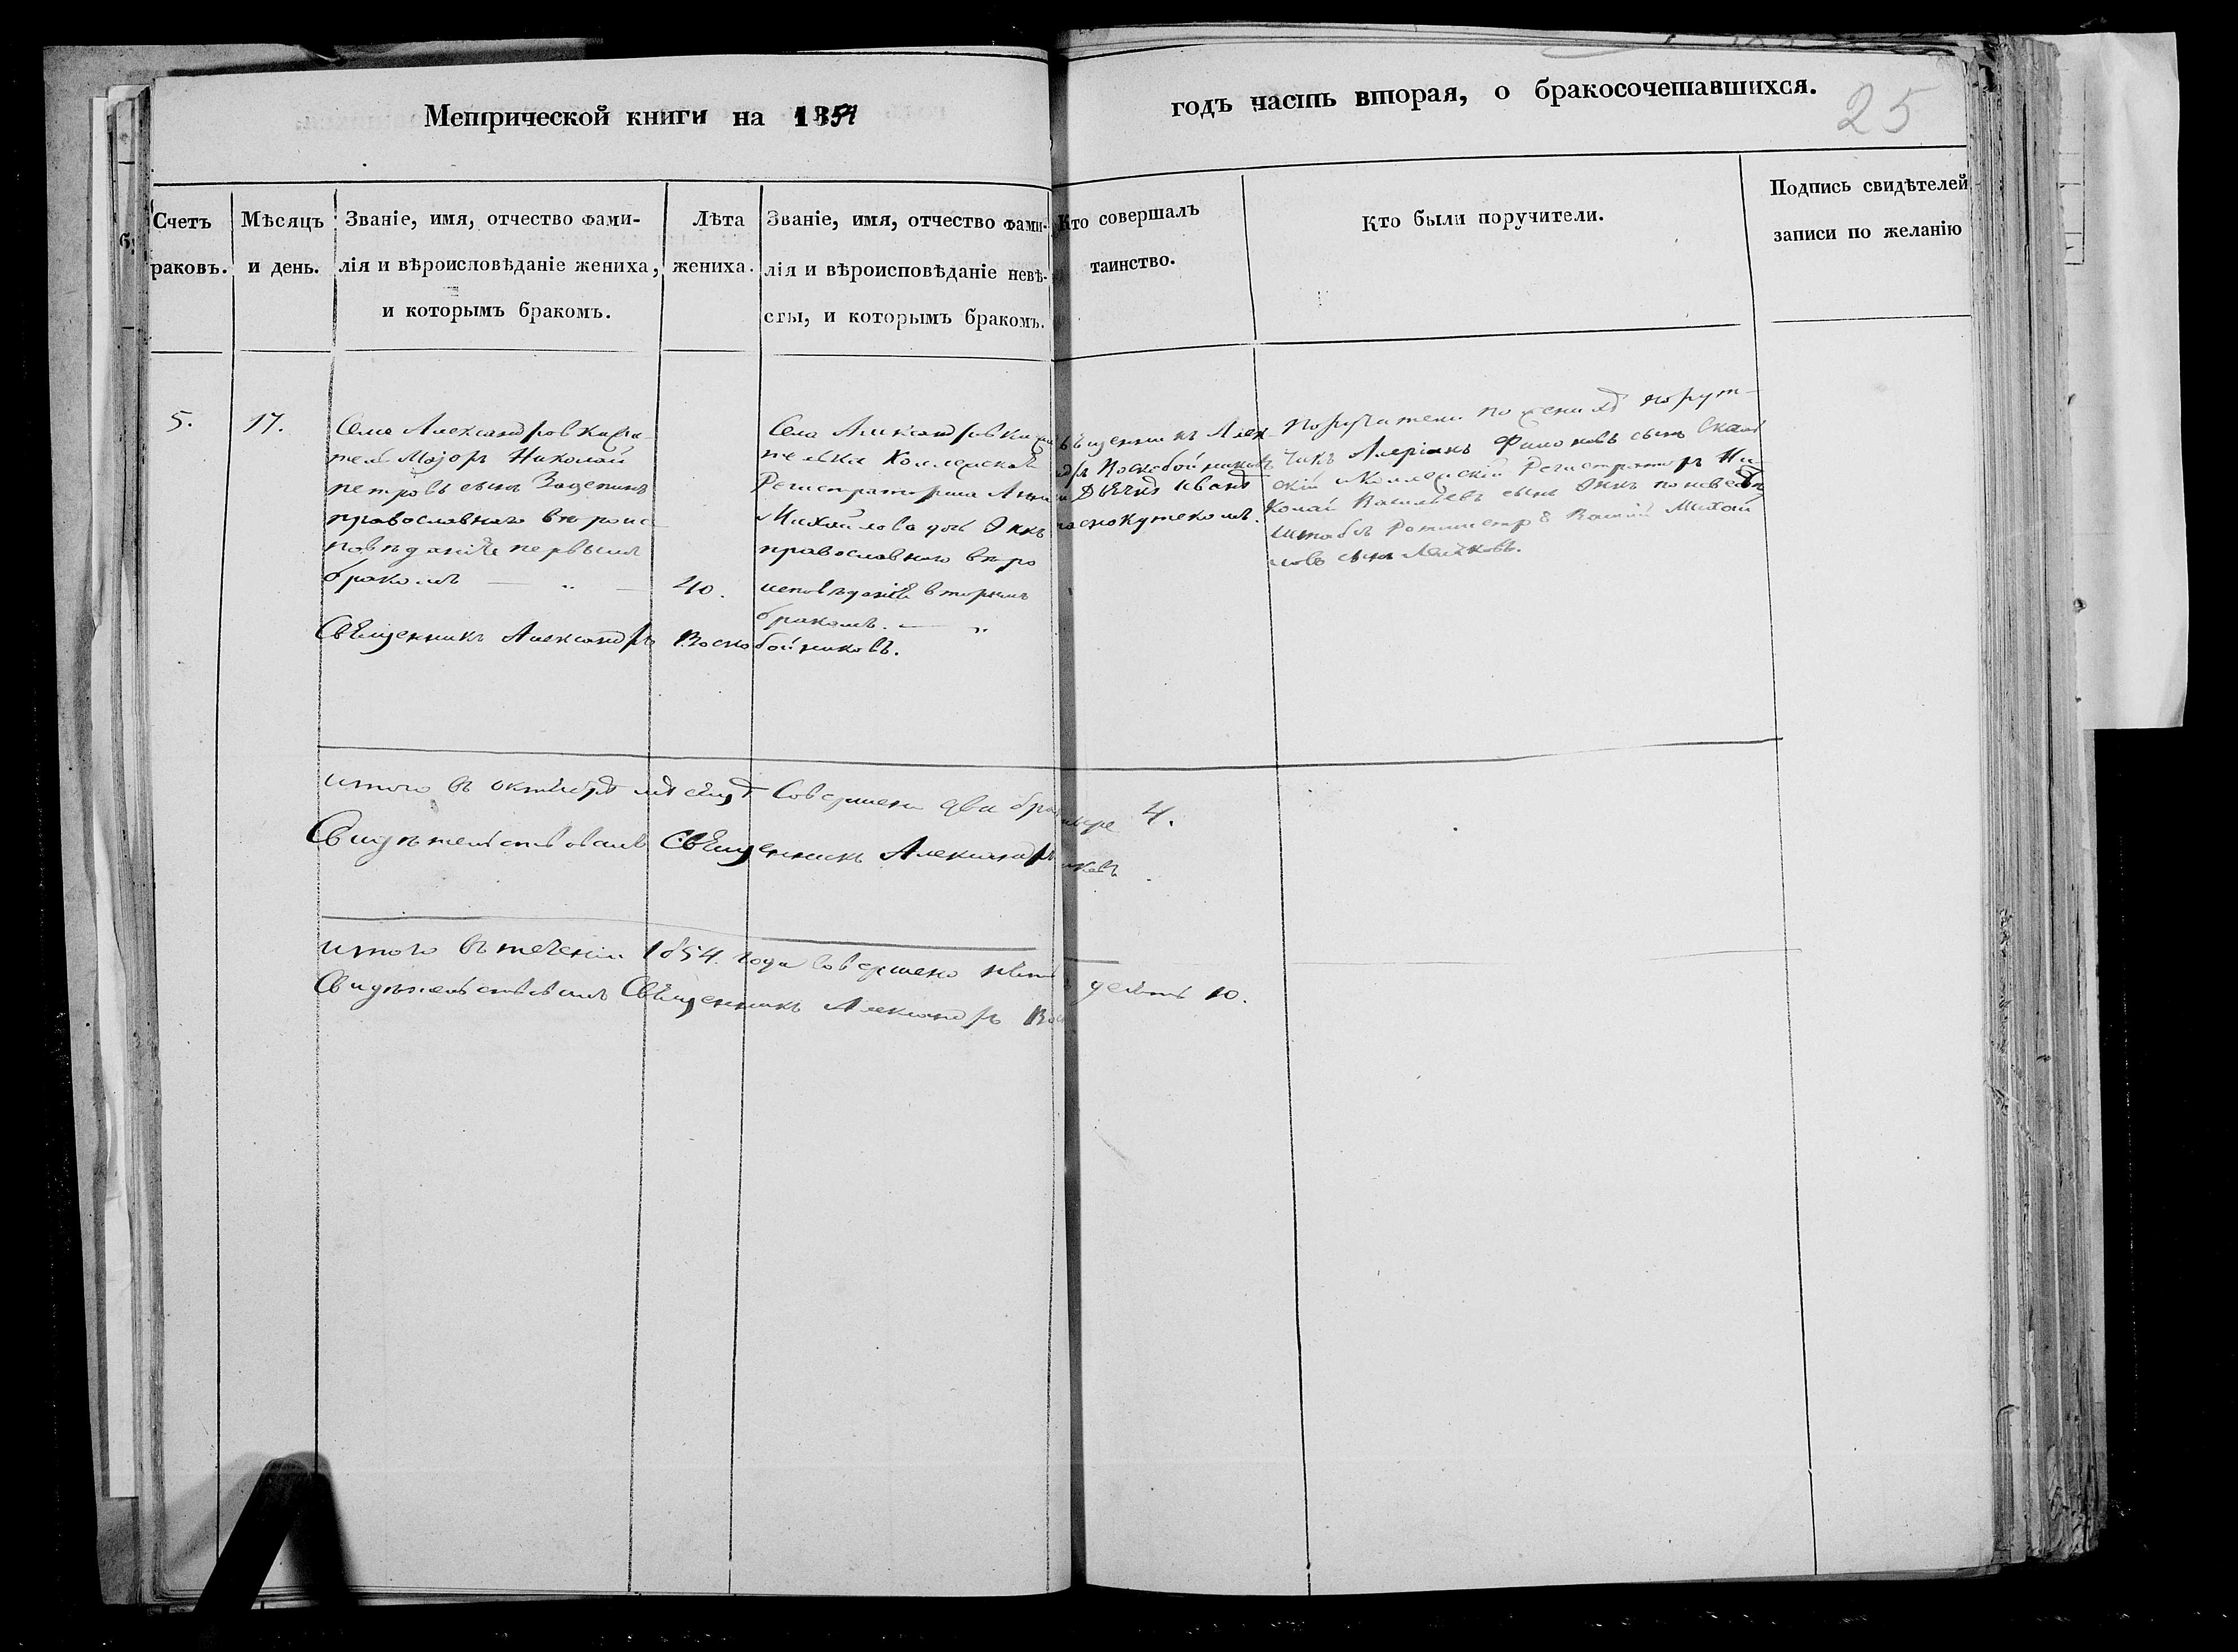 Метрической книги на 1854
годъ часть вторая, о бракосочетавшихся.
25
Счетъ
раковъ.
Мѣсяцъ
и день.
Званіе, имя, отчество фами-
лія и вѣроисповѣданіе жениха,
и которымъ бракомъ.
Лѣта
жениха.
Званіе, имя, отчество фами-
лія и вѣроисповѣданіе невѣ-
сты, и которымъ бракомъ.
Кто совершалъ
таинство.
Кто были поручители.
Подпись свидѣтелей
записи по желанію
5.
17.
Села Александровки
Маіоръ Николай
Петровъ сынъ
православнаго вѣроис-
повѣданія первымъ
бракомъ
40.
Села Александровки
Коллежская
Регистраторша Анна
Михайлова дочь
православнаго вѣро
исповѣданія вторымъ
бракомъ.
Священникъ Алек-
Воскобойниковъ
Поручители по женихѣ порут-
чикъ сынъ
Коллежскій Регистраторъ Ни-
колай Васильевъ сынъ по невѣстѣ
штабсъ Ротмистръ Михай
ловъ сынъ
Священникъ Александръ Воскобойниковъ.
итого въ октябрѣ мѣсяцѣ совершено два 4.
Свидѣтельствовалъ Священникъ Александръ
итого въ теченіи 1854. года совершено десять 10.
Священникъ Александръ